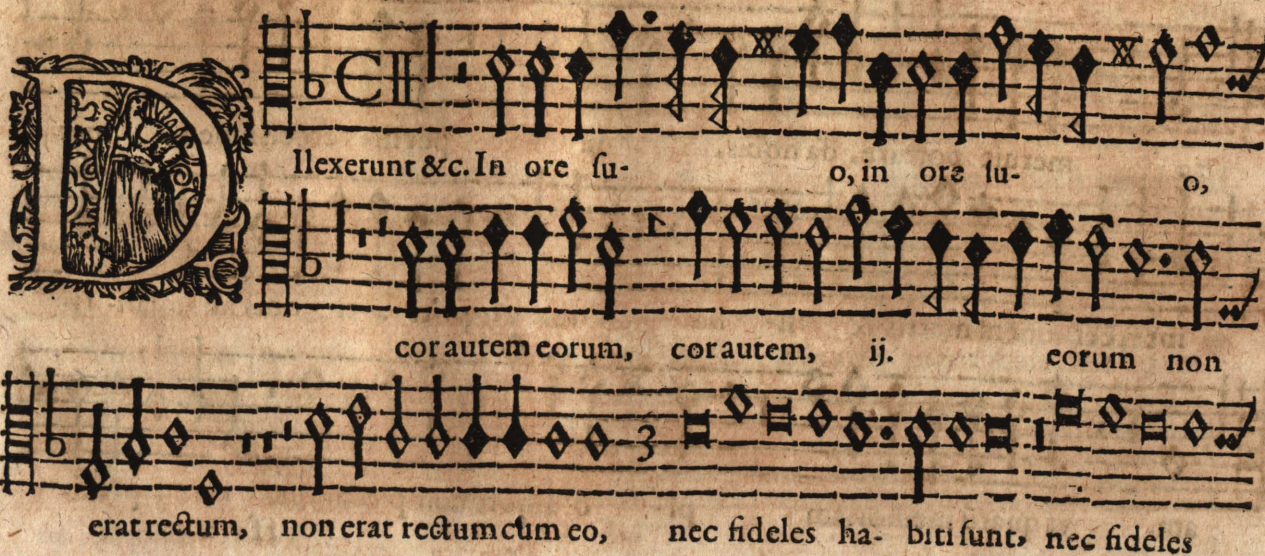 DIlexerunt &c. In ore ſu- o, in ore ſu- o,
cor autem eorum, cor autem, ij. eorum non
erat rectum, non erat rectum cum eo, nec fideles ha- biti ſunt, nec fideles